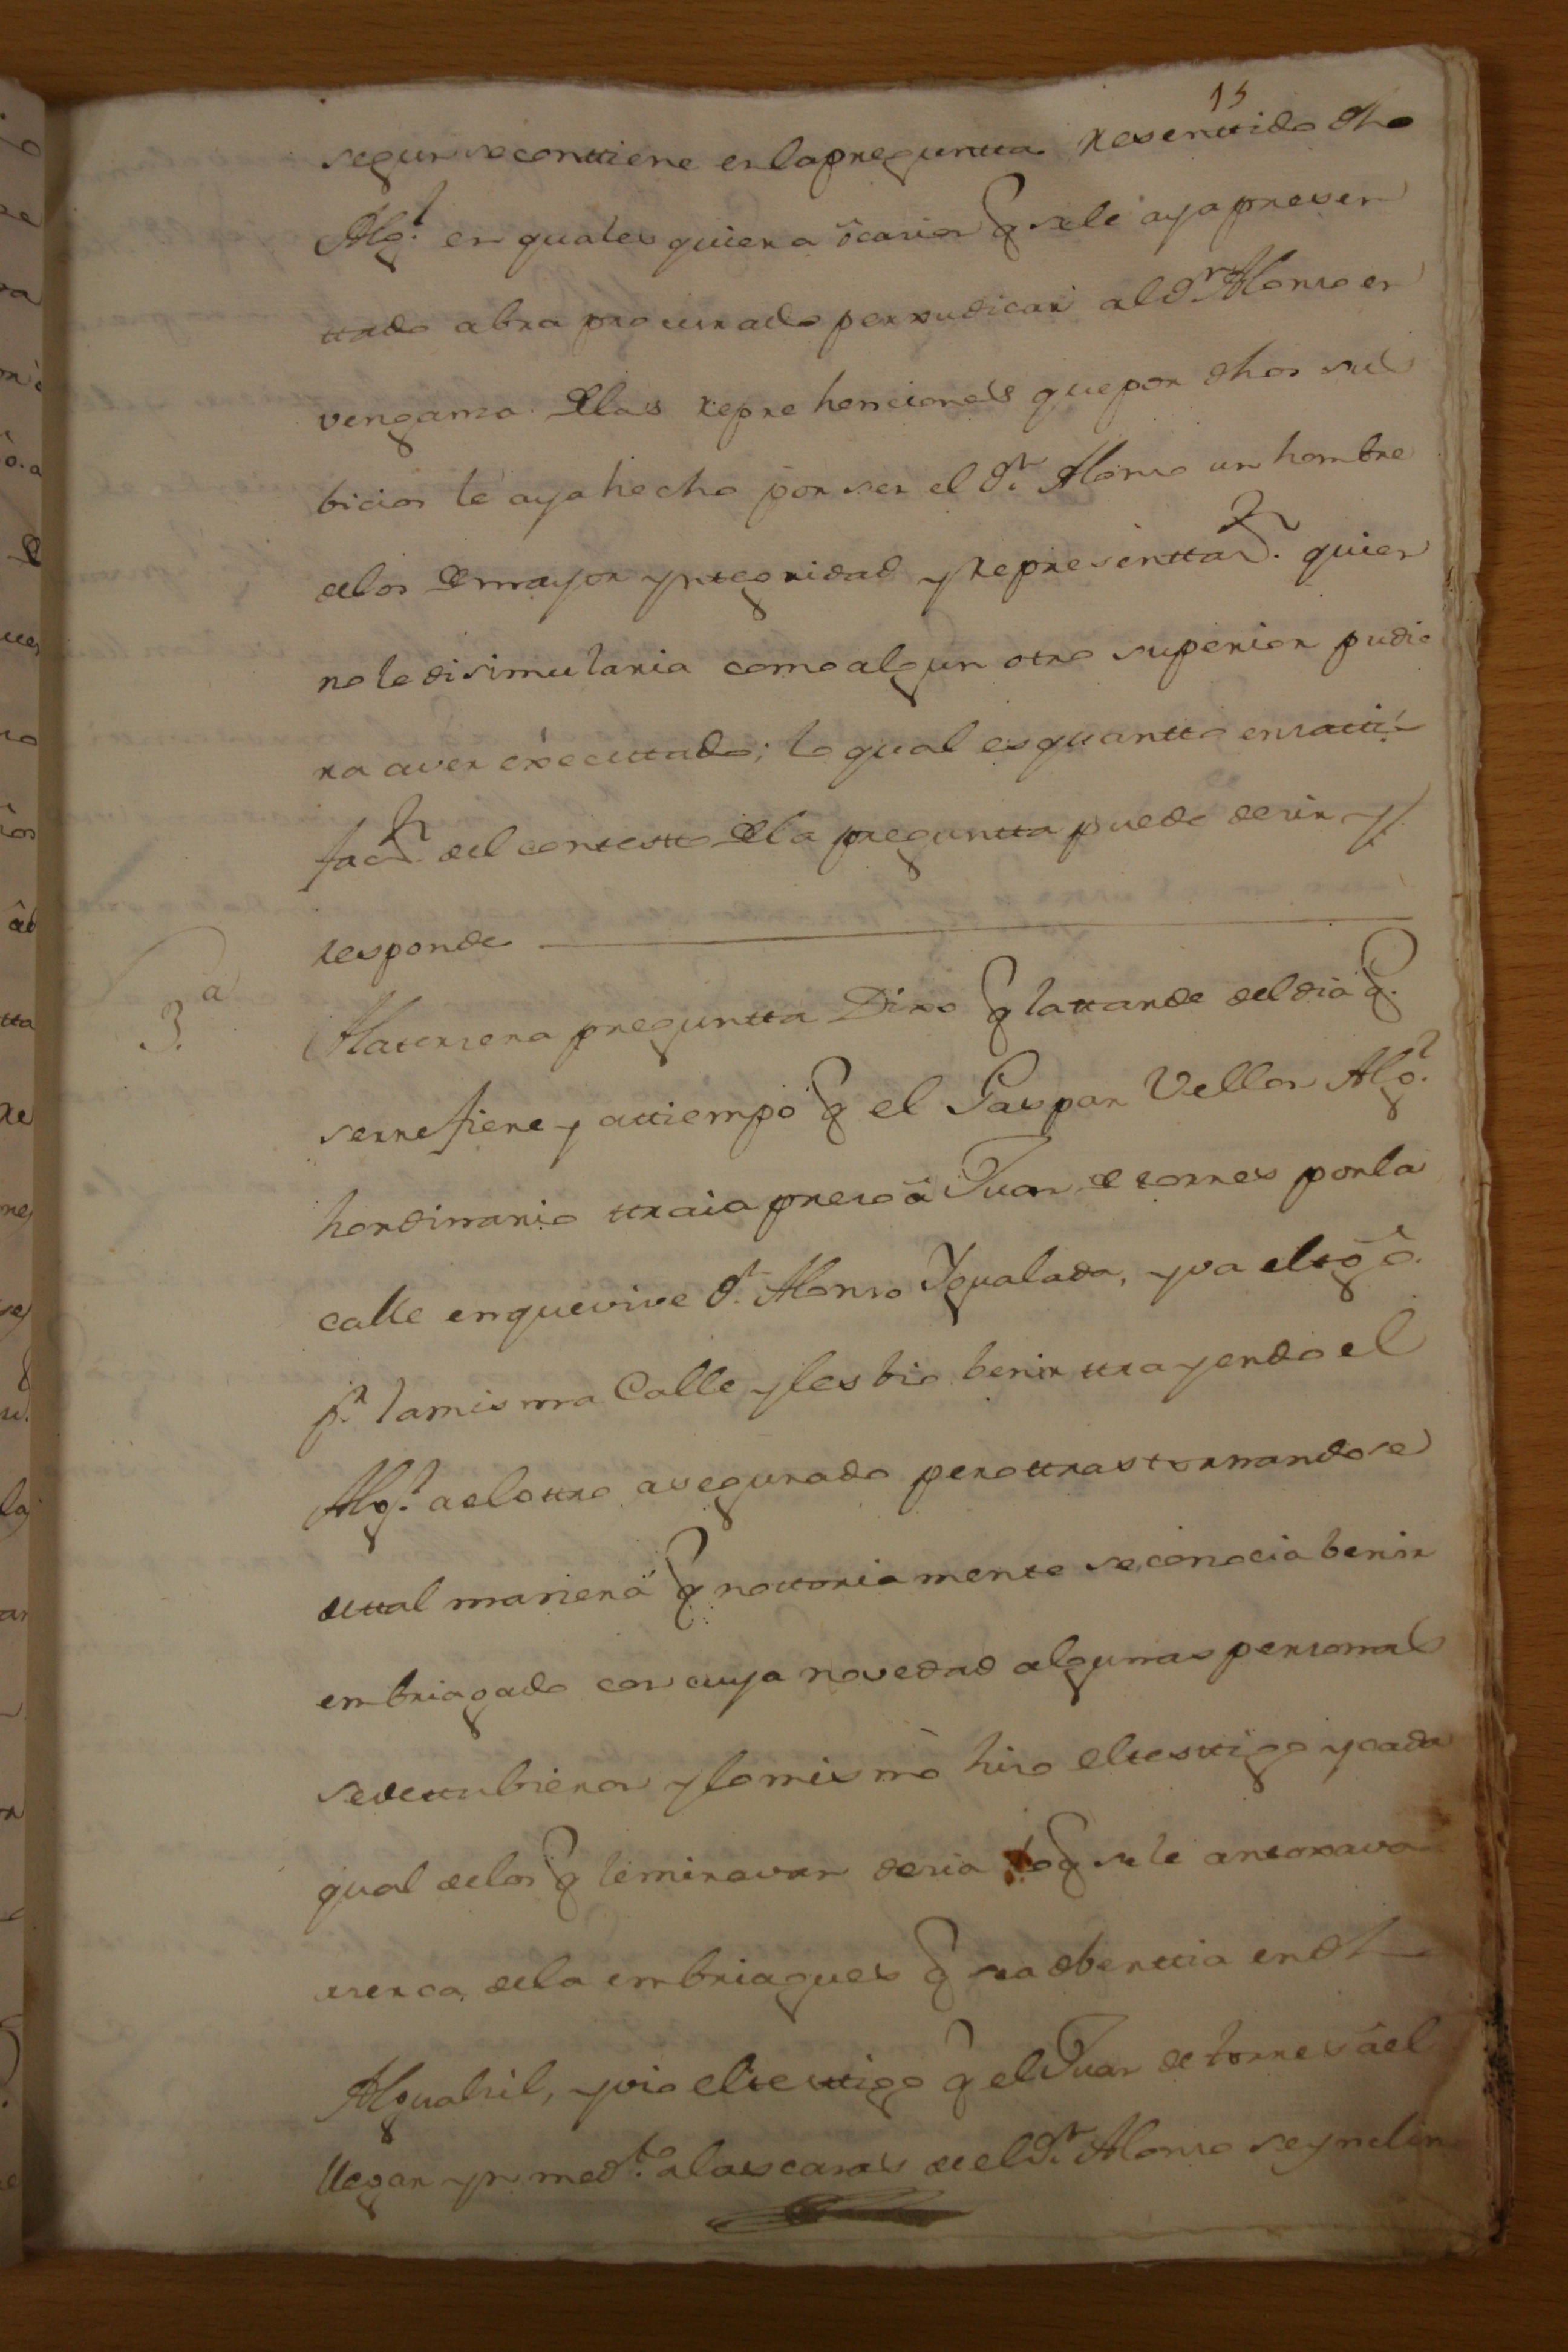 15
segun se conttiene en la preguntta resenttido dho
Alg.l en quales quiera ôcasion q se le aya presen
ttado abra procurado perxudicar al Dn Alonso en
venganza de las reprehenciones que por dhos sus
bicios le aya hecho por ser el Dn Alonso un hombre
de los de mayor yntegridad y representtaon. quien
no le disimularia como algun otro superior pudie
ra aver executtado; lo qual es quantto en sattis
facn. del contestto de la preguntta puede desir y
responde
3.a
A la tersera preguntta Dixo q la ttarde del dia q.
se rrefiere y a ttiempo q el Gaspar Vellon Alg.l
hordinario ttraia preso â Juan de torres por la
calle en que vive Dn. Alonso Ygualada, yva el tgô.
pr. la misma Calle y les bio benir ttrayendo el
Algl. a el ottro asegurado pero ttrastornandose
de ttal manera q nottoriamente se conocia benir
embriagado con cuya novedad algunas personas
se dettubieron y lo mismo hiso el testtigo y cada
qual de los q le miravan desia lo q se le antoxava
serca de la embriagues q se adberttia en dho
Alguasil, y vio el testtigo q el Juan de torres â el
llegar ynmedto. a las casas de el Dn. Alonso se ynclin